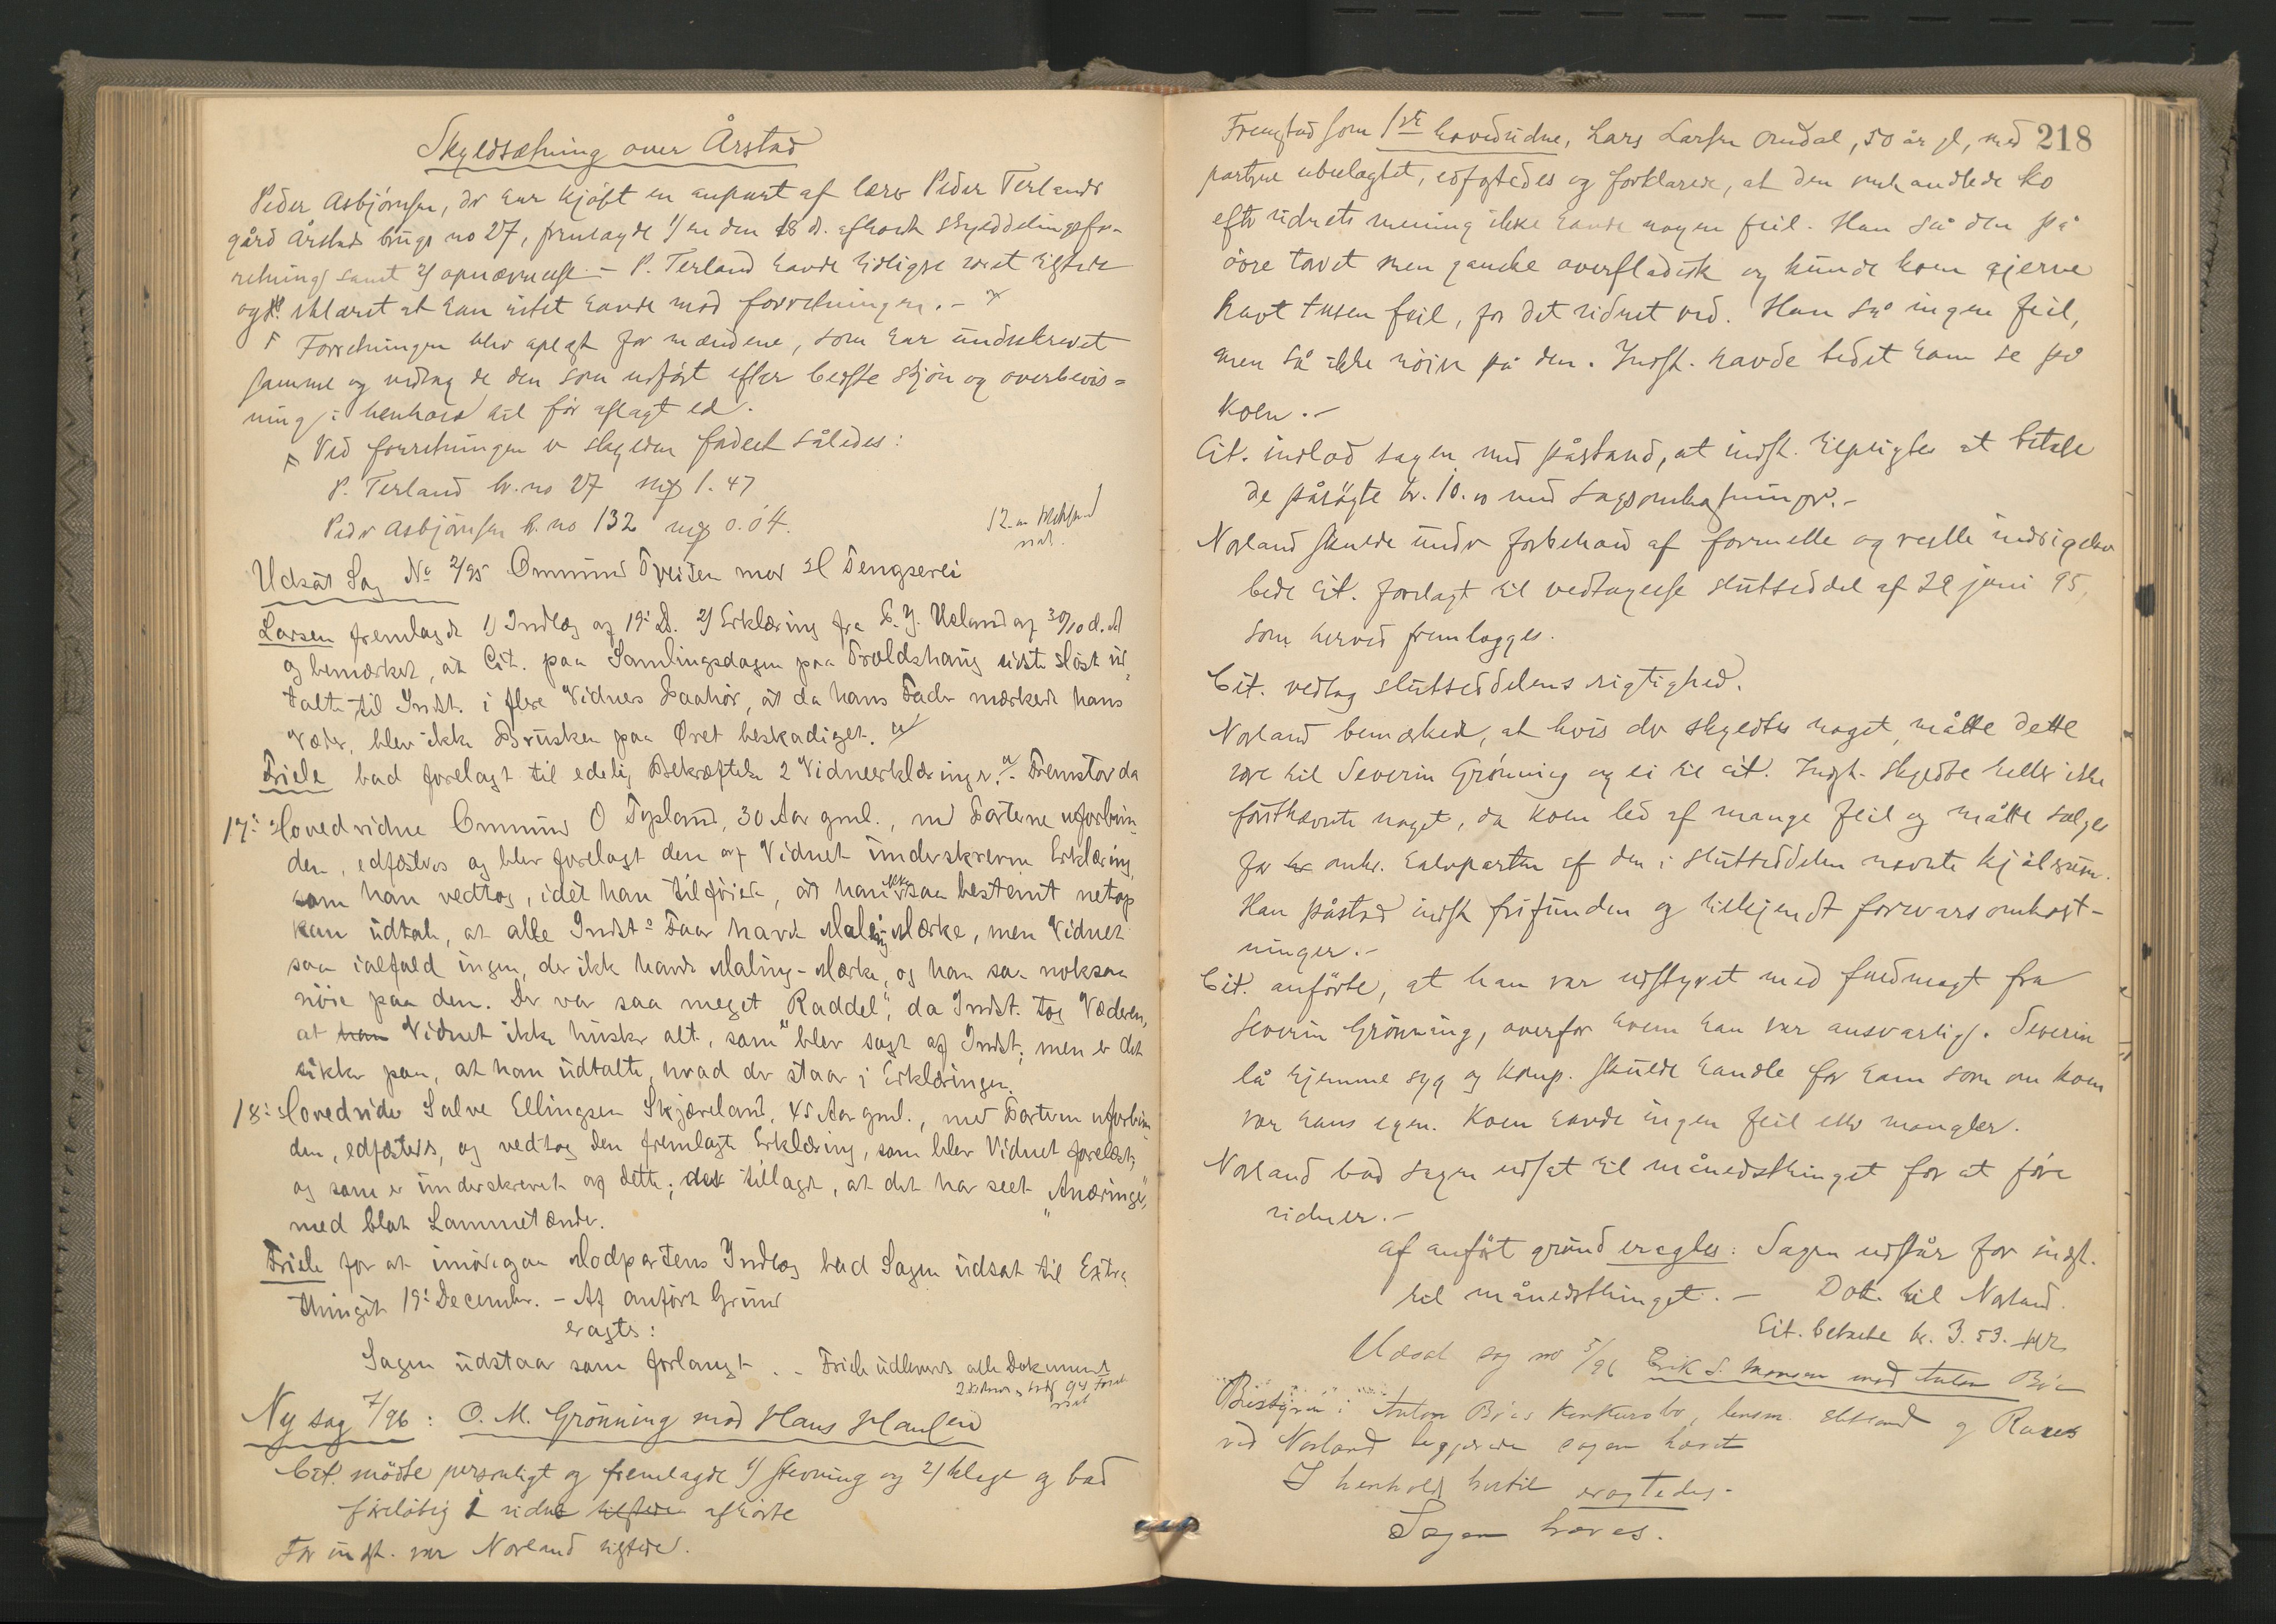 Skyldsætning over Årstad
Peder Asbjörnsen, der har kjöbt en anpart af lærer Peder Terlands
gård Årstads brugs no 27, fremlagde 1/ en den 18 d. afholdt skylddelingsfor-
retning samt 2/ opnævnelse. – P. Terland havde tidligere været tilstede
og erklæret at han intet havde mod forretningen. –
Forretningen blev oplæst for mændene, som har underskrevet
samme og vedtog de den som udfört efter bedste skjön og overbevis-
ning i henhold til för aflagt ed.
Ved forretningen er skylden fordelt således:
P. Terland br. no 27 1.47
Peder Asbjörnsen b. no 132 0.04.
12
Udsat Sag No 2/95 Ommund Tveiten mod H Tengserei
Larsen fremlagde 1) Indlæg af 19: D. 2) Erklæring fra af 30/10 d. A
og bemærket, at Cit. paa Samlingsdagen paa Troldshaug sidste Høst ud-
talte til Indst. i flere Vidners Paahør, at da hans Fader mærkede hans
Væder, blev ikke Brusken paa Øret beskadiget.
Friele bad forelagt til edelig Bekræftelse 2 Vidneerklæringer. – Fremstod da
17: Hovedvidne Ommund O Typland, 30 Aar gml., med Parterne uforbun-
den, edfæstedes og blev forelagt den af Vidnet underskrevne Erklæring,
som han vedtog, idet han tilføiede, at han ikke saa bestemt netop
kan udtale, at alle Indst:s Faar havde Maling-Mærke, men Vidnet
saa ialfald ingen, der ikke havde Maling-Mærke, og han saa noksaa
nöie paa den. Der var saa meget "Raddel", da Indst. tog Væderen,
at han Vidnet ikke husker alt, som blev sagt af Indst; men er det
sikker paa, at han udtalte, hvad der staar i Erklæringen.
18: Hovedvidne Salve Ellingsen Skjæveland, 45 Aar gml., med Parterne uforbun-
den, edfæstedes, og vedtog den fremlagte Erklæring, som blev Vidnet forelæst,
og som er underskrevet af dette; det tillagde, at det har seet "Anæringer",
med blot Lammetænder.
Friele for at imødegaa Modpartens Indlæg bad Sagen udsat til Extra-
thinget 19: December. – Af anført Grund
eragtes:
Sagen udstaar som forlangt. – Friele udleveres alle Dokumenter
Ny sag 7/96: O. M. Grönning mod Hans Haule
Cit. mödte personligt og fremlagde 1/ stevning og 2/ klage og bad
foreløbig 1 vidne tilstede afhörte
For indst. var Norland tilstede.
218
Fremstod som 1ste hovedvidne, Lars Larsen Omdal, 50 år gl, med
partene ubeslægtet, edfæstedes og forklarede, at den omhandlede ko
efter vidnets mening ikke havde nogen feil. Han så den på
övre torvet men ganske overfladisk og kunde koen gjerne
havt tusen feil, for det vidnet ved. Han så ingen feil,
men så ikke nöiere på den. Indst. havde bedet ham se på
koen. –
Cit. indlod sagen med påstand, at indst. tilpligtes at betale
de påsögte kr. 10.00 med sagsomkostninger. –
Norland skulde under forbehold af formelle og reelle indsigelser
bede Cit. forelagt til vedtagelse slutseddel af 29 juni 95,
som herved fremlægges.
Cit. vedtog slutseddelens rigtighed.
Norland bemærkede, at hvis der skyldtes noget, måtte dette
være til Severin Grönning og ei til Cit. Indst. skyldte heller ikke
förstnævnte noget, da koen led af mange feil og måtte sælges
for kr omkr. halvparten af den i slutseddelen nævnte kjöbesum.
Han påstod indst frifunden og tilkjendt forsvarsomkost-
ninger. –
Cit. anförte, at han var udstyret med fuldmagt fra
Severin Grönning, overfor hvem han var ansvarlig. Severin
lå hjemme syg og komp. skulde handle for ham som om koen
var hans egen. Koen havde ingen feil eller mangler.
Norland bad sagen udsat til månedsthinget for at före
vidner. –
Af anfört grund eragtes: Sagen udstår for indst.
til månedsthinget. – Dok. til Norland.
Cit. betalte kr. 3.53.
Udsat sag no 5/96 Erik S. Monsen mod Anton Böe
Bestyrere i Anton Böes konkursbo, lensm. og Raees
ved Norland begjærede sagen hævet
I henhold hertil eragtedes.
Sagen hæves.